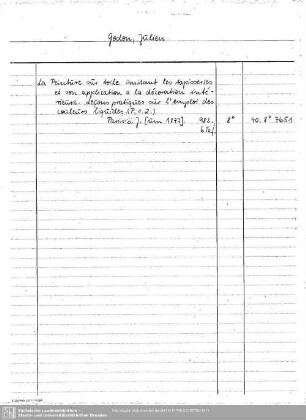 Godon, Julien
La Peinture sur toile imitant les tapisseries
et son application a la décoration inté-
rieure. Leçons pratiques sur l'emploi des
couleurs liquides (P. 1. 2.)
Paris o. J. [um 1877]. 8° 40. 8° 7651